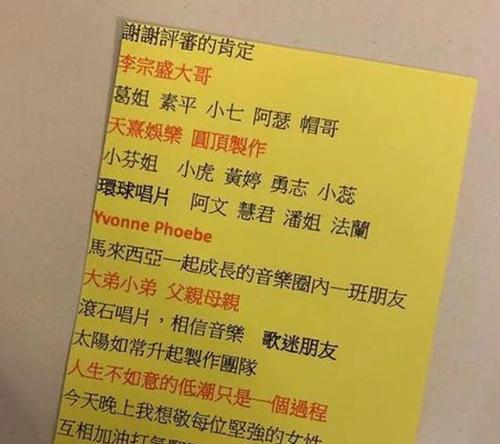 謝謝評審的肯定
李宗盛大哥
葛姐 素平 小七 阿瑟 帽哥
天熹娛樂 圓頂製作
小芬姐 小虎 黃婷 勇志 小蕊
環球唱片 阿文 慧君 潘姐 法蘭
Yvonne Phoebe
馬來西亞一起成長的音樂圈內一班朋友
大弟小弟 父親母親
滾石唱片，相信音樂 歌迷朋友
太陽如常升起製作團隊
人生不如意的低潮只是一個過程
今天晚上我想敬每位堅強的女性
互相加油打氣